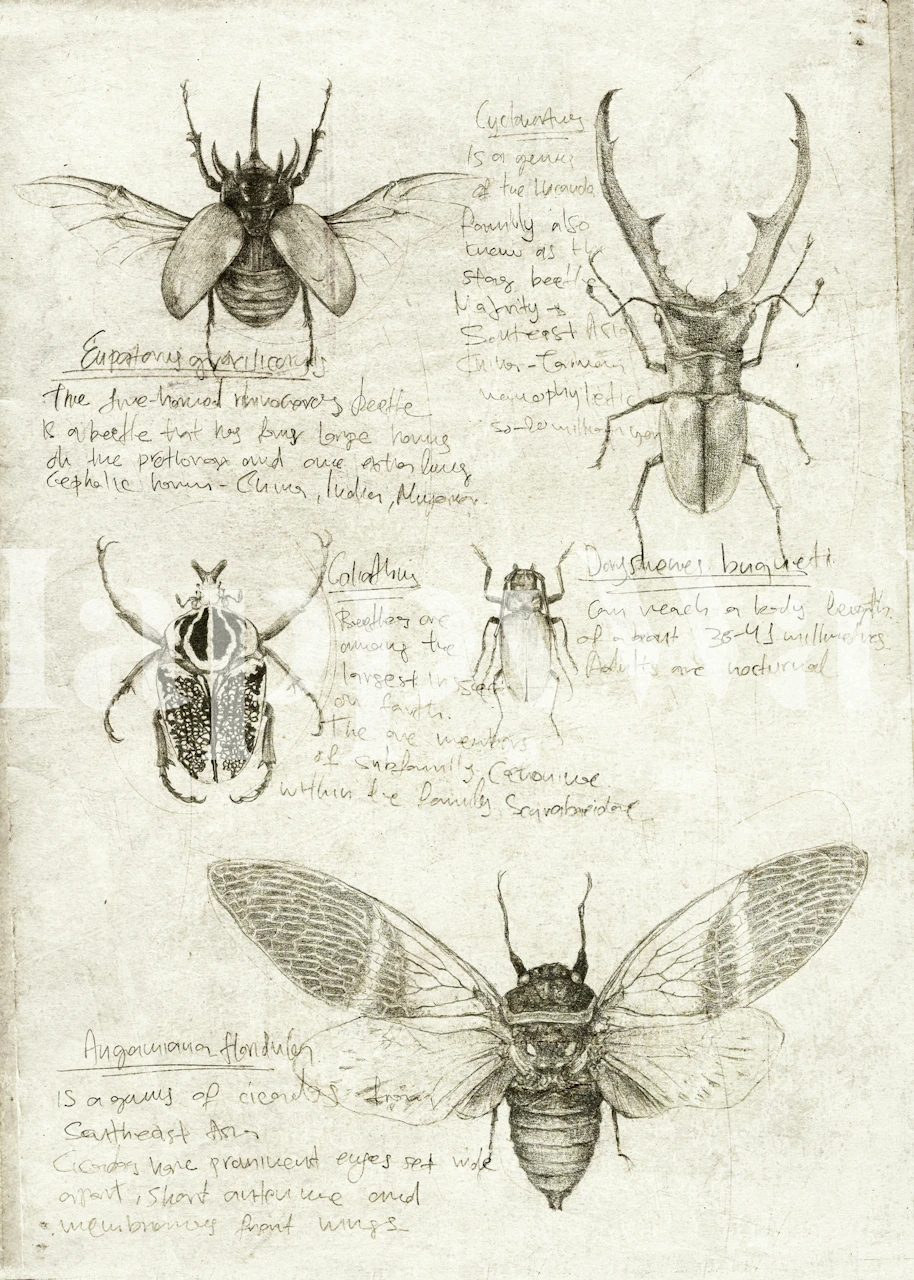 Eupatorus gracilicornis
The five-horned rhinoceros beetle
is a beetle that has four large horns
on the prothorax and one extra long
cephalic horn - China, India, Myanmar.
Cyclommatus
is a genus
of the Lucanidae
family also
known as the
stag beetles
Majority -
Southeast Asia
monophyletic
Goliathus
Beetles are
among the
largest insects
on Earth.
The are members
of subfamily Cetoniinae
within the family Scarabaeidae
Dorysthenes buqueti.
Can reach a body length
of about 35-41 millimetres.
Adults are nocturnal
Angamiana floridula
is a genus of cicadas from
Southeast Asia
Cicadas have prominent eyes set wide
apart, short antennae and
membranous front wings